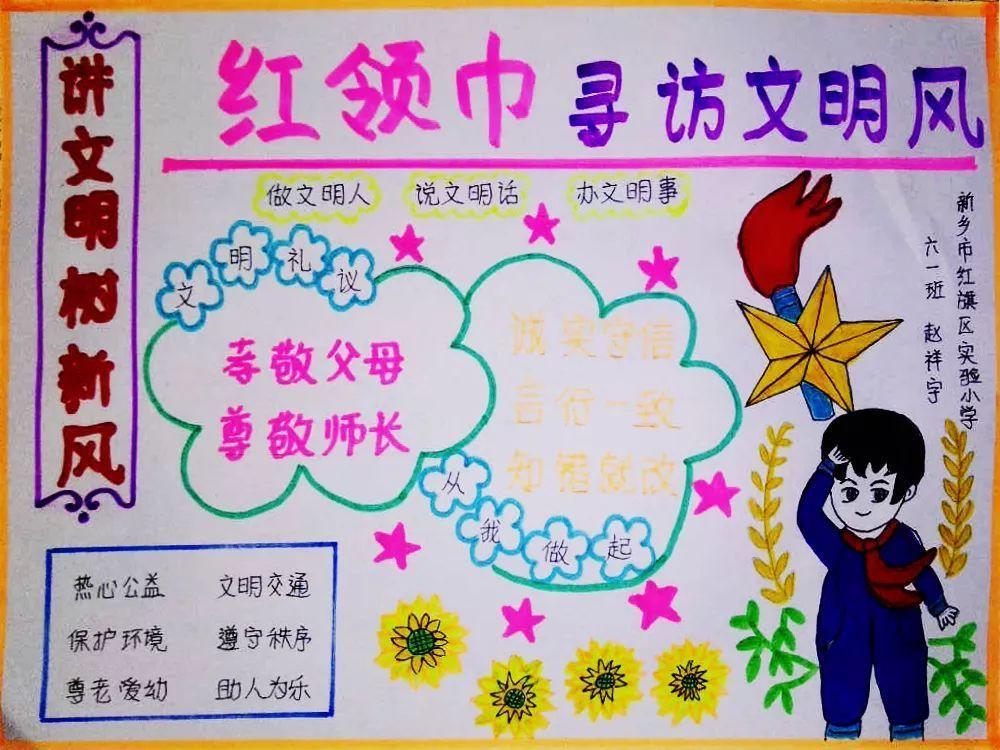 红领巾寻访文明风
讲文明树新风
做文明人 说文明话 办文明事
新乡市红旗区实验小学
六一班 赵祥宇
文明礼议
孝敬父母
尊敬师长
诚实守信
言行一致
知错就改
从我做起
热心公益 文明交通
保护环境 遵守秩序
尊老爱幼 助人为乐